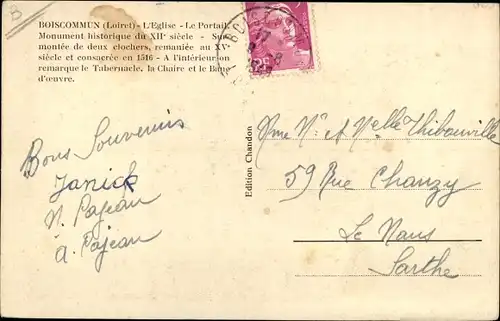 BOISCOMMUN (Loiret) - L'Eglise - Le Portail.
Monument historique du XIIe siècle - Sur-
montée de deux clochers, remaniée au XVe
siècle et consacrée en 1516 - A l'intérieur on
remarque le Tabernacle, la Chaire et le Banc
d'œuvre.
Bons Souvenirs
Janick
N. Pajean
A. Pajean
Edition Chandon
Mme Ve A Nelle Thibouville
59 Rue Chanzy
Le Mans
Sarthe